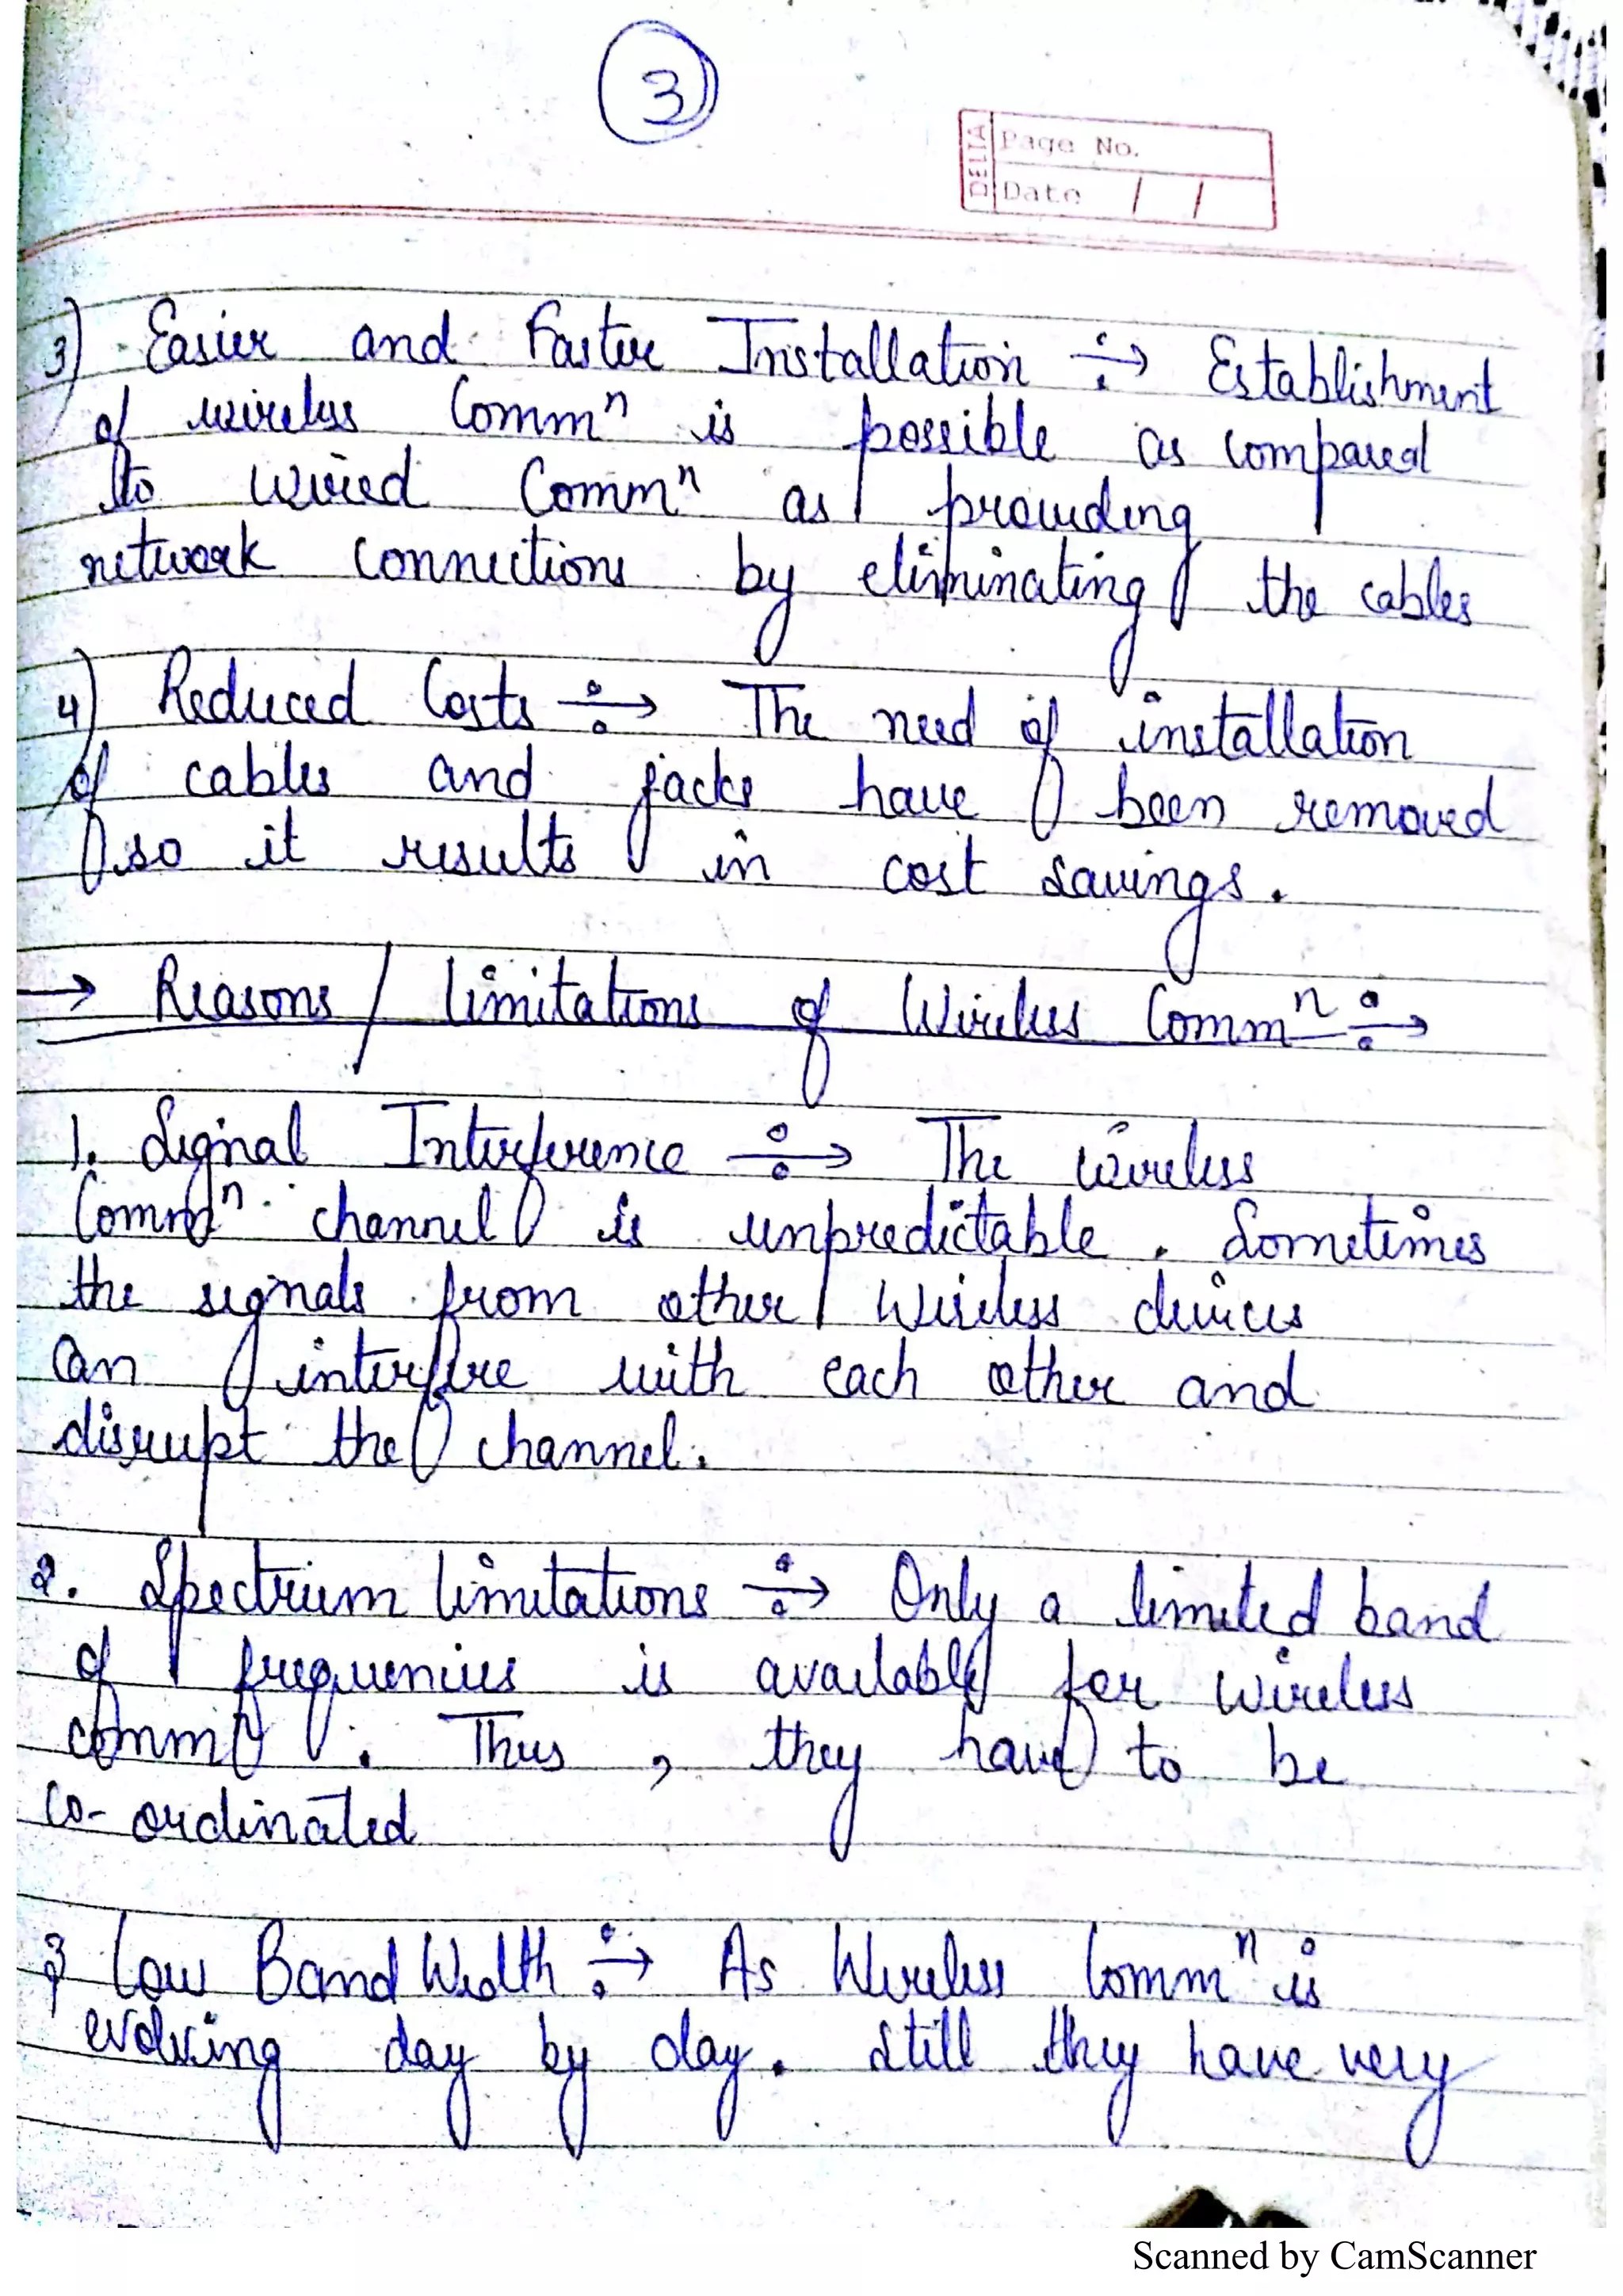 3
DELTA
Page No.
Date / /
3) Easier and Faster Installation ÷→ Establishment
of wireless Commⁿ is possible as compared
to wired Commⁿ as providing
network connections by eliminating the cables
4) Reduced Costs ÷→ The need of installation
of cables and jacks have been removed
so it results in cost savings.
→ Reasons / limitations of Wireless Commⁿ ÷→
1. Signal Interference ÷→ The wireless
Commⁿ channel is unpredictable. Sometimes
the signals from other Wireless devices
can interfere with each other and
disrupt the channel.
2. Spectrum limitations ÷→ Only a limited band
of frequencies is available for wireless
comm. Thus, they have to be
co-ordinated
3 Low BandWidth ÷→ As Wireless Commⁿ is
evolving day by day. Still they have very
Scanned by CamScanner